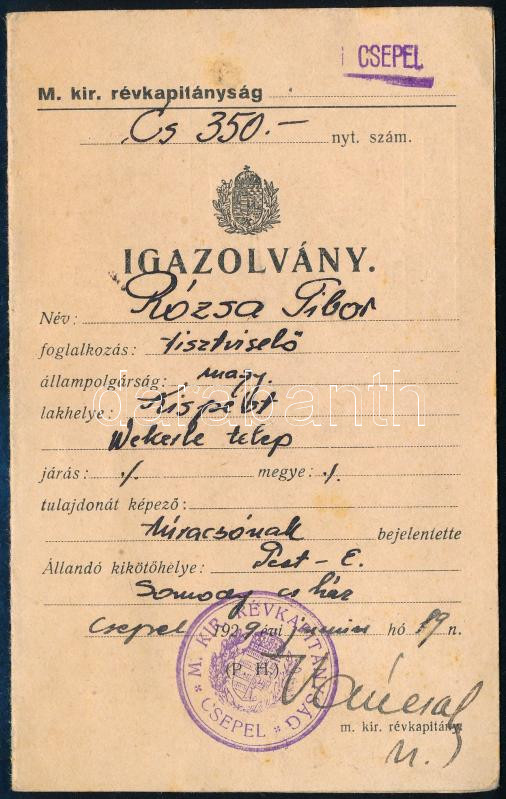 CSEPEL
M. kir. révkapitányság
Cs 350.– nyt. szám.
IGAZOLVÁNY.
Név: Rózsa Tibor
foglalkozás: tisztviselő
állampolgárság: magy.
lakhelye: Kispest
Wekerle telep
járás: ·/. megye: ·/.
tulajdonát képező:
túracsónak bejelentette
Állandó kikötőhelye: Pest-E.
Somody cs ház
Csepel 1929 évi június hó 19 n.
(P. H.)
M. KIR. RÉVKAPITÁNYSÁG
CSEPEL
m. kir. révkapitány.
darabanth